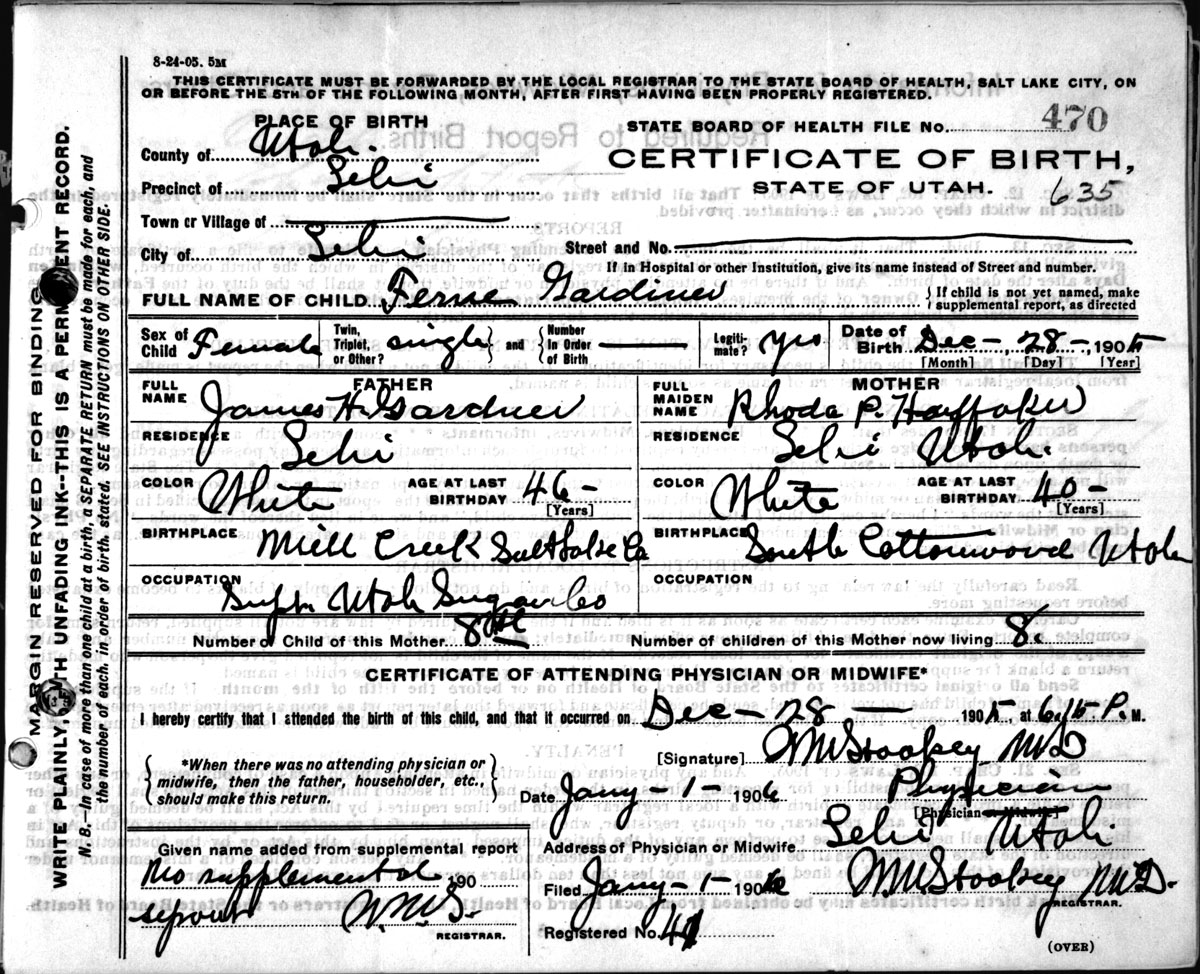 8-24-05. 5M
THIS CERTIFICATE MUST BE FORWARDED BY THE LOCAL REGISTRAR TO THE STATE BOARD OF HEALTH, SALT LAKE CITY, ON
OR BEFORE THE 5TH OF THE FOLLOWING MONTH, AFTER FIRST HAVING BEEN PROPERLY REGISTERED.
PLACE OF BIRTH
STATE BOARD OF HEALTH FILE No. 470
County of Utah.
CERTIFICATE OF BIRTH,
Precinct of Lehi
STATE OF UTAH. 635
Town or Village of
City of Lehi
Street and No.
If in Hospital or other Institution, give its name instead of Street and number.
FULL NAME OF CHILD Ferne Gardiner
{ If child is not yet named, make supplemental report, as directed
Sex of Child Female
Twin, Triplet, or Other? single } and { Number In Order of Birth
Legitimate? yes
Date of Birth Dec-, 28-, 1905
[Month] [Day] [Year]
FATHER
FULL NAME James H. Gardner
MOTHER
FULL MAIDEN NAME Rhoda P. Huffaker
RESIDENCE Lehi
RESIDENCE Lehi Utah.
COLOR White AGE AT LAST BIRTHDAY 46- [Years]
COLOR White AGE AT LAST BIRTHDAY 40- [Years]
BIRTHPLACE Mill Creek Salt Lake Co
BIRTHPLACE South Cottonwood Utah
OCCUPATION Supt. Utah Sugar Co
OCCUPATION
Number of Child of this Mother 8th
Number of children of this Mother now living 8
CERTIFICATE OF ATTENDING PHYSICIAN OR MIDWIFE*
I hereby certify that I attended the birth of this child, and that it occurred on Dec- 28 1905 at P. M.
{ *When there was no attending physician or midwife, then the father, householder, etc., should make this return. }
[Signature] Stookey MD
Date Jany-1- 1906 Physician
[Physician or Midwife]
Address of Physician or Midwife Lehi Utah
Given name added from supplemental report
No supplemental 190
report
REGISTRAR.
Filed Jany-1- 1906 Stookey MD.
REGISTRAR.
Registered No. 41
(OVER)
MARGIN RESERVED FOR BINDING
WRITE PLAINLY, WITH UNFADING INK--THIS IS A PERMANENT RECORD.
N. B.—In case of more than one child at a birth, a SEPARATE RETURN must be made for each, and
the number of each, in order of birth, stated. SEE INSTRUCTIONS ON OTHER SIDE.